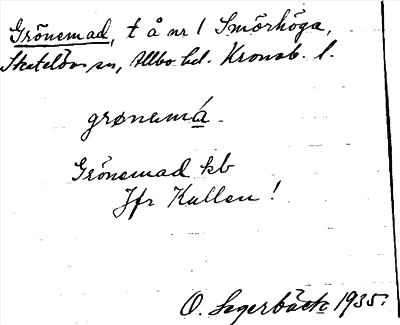 Grönemad, t å nr 1 Smörhöga,
Skatelövs sn, Allbo hd. Kronob. l.
grønemá.
Grönemad kb
Jfr Kullen!
O. Lagerbäck 1935.